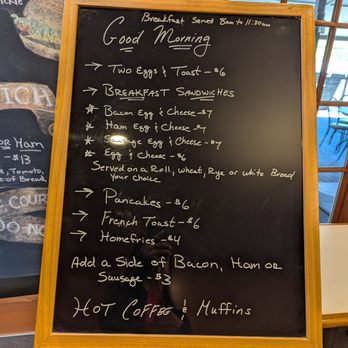 Breakfast Served 8am to 11:30am
Good Morning
→ Two Eggs & Toast - $6
→ Breakfast Sandwiches
* Bacon Egg & Cheese - $7
* Ham Egg & Cheese - $7
* Sausage Egg & Cheese - $7
* Egg & Cheese - $6
Served on a Roll, wheat, Rye or white Bread
your choice
→ Pancakes - $6
→ French Toast - $6
→ Homefries - $4
Add a Side of Bacon, Ham or
Sausage - $3
Hot Coffee & Muffins
ICH
OR Ham
- $13
e, Tomato,
e of Bread
COUR
DO NO